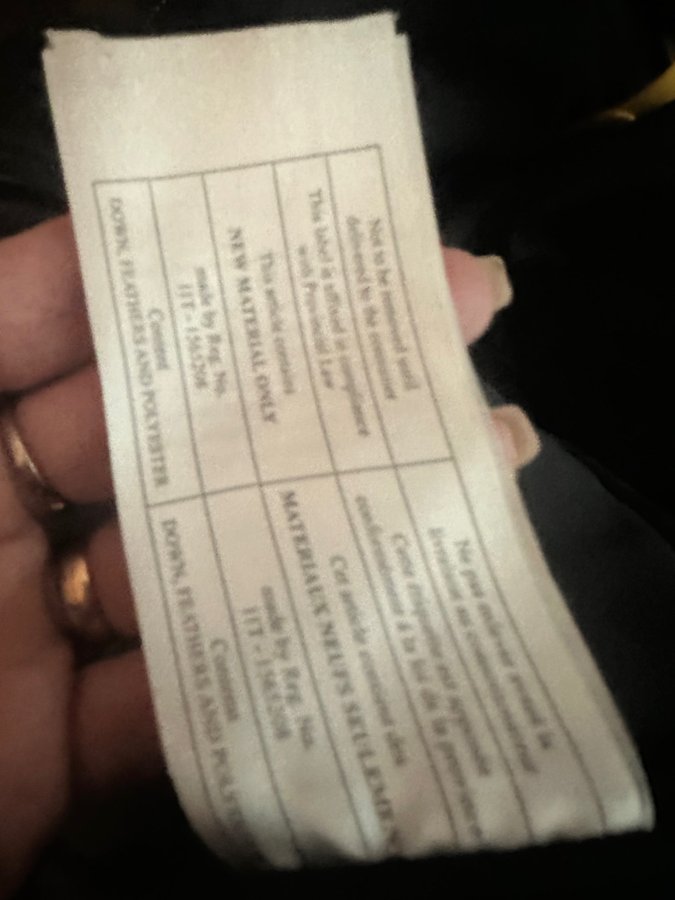 Not to be removed until
delivered to the consumer
This label is affixed in compliance
with Provincial Law
This article contains
NEW MATERIAL ONLY
made by Reg. No.
Content
DOWN, FEATHERS AND POLYESTER
Ne pas enlever avant la
livraison au consommateur
Cette étiquette est apposée
conformément à la loi de la province
Cet article contient des
MATERIAUX NEUFS SEULEMEN
made by Reg. No.
Contenu
DOWN, FEATHERS AND POLYE